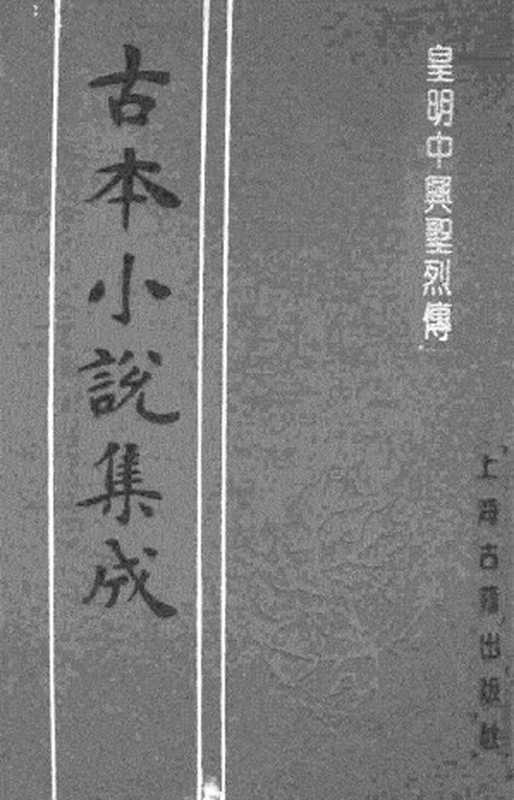 皇明中興聖烈傳
上海古籍出版社
古本小說集成